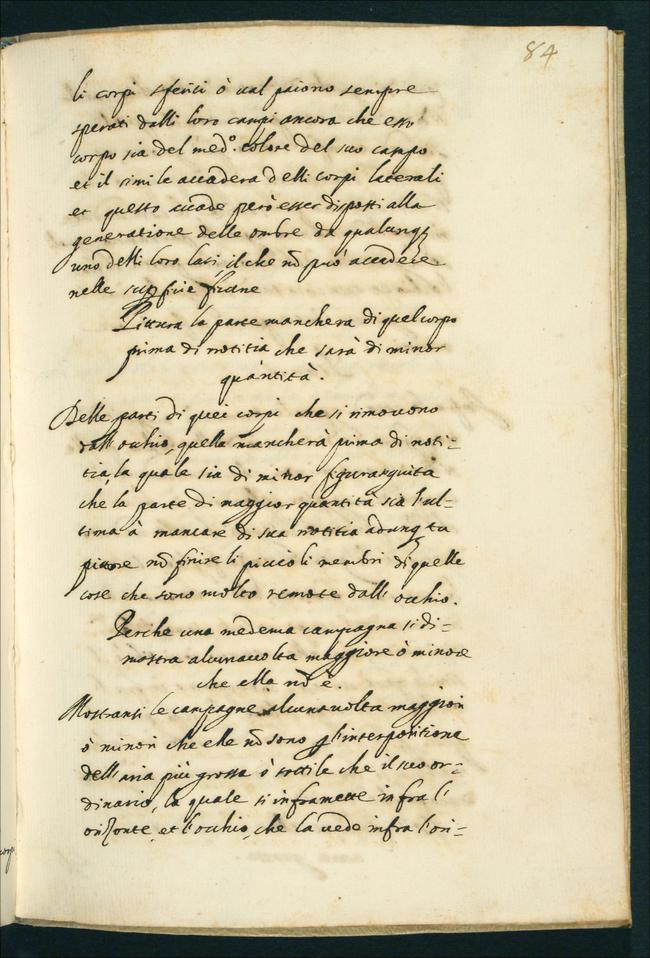 84
li corpi sferici ò ual paiono sempre
sperati dalli loro campi ancora che esso
corpo sia del med.º colore del suo campo
et il simile accaderà delli corpi laterali
et questo accade però esser disposti alla
generatione delle ombre da qualunq3
uno delli loro lati, il che nō può accadere
nelle supficie piane
Pittura la parte mancherà di quel corpo
prima di notitia che sarà di minor
quantità.
Delle parti di quei corpi che si rimouono
dall'occhio, quella mancherà prima di noti-
tia, la quale sia di minor figura
che la parte di maggior quantità sia l'ul-
tima à mancare di sua notitia adunq3 tu
pittore nō finire li piccioli membri di quelle
cose che sono molto remote dall'occhio.
Perche una medema campagna si di-
mostra alcunauolta maggiore ò minore
che ella nō è.
Mostransi le campagne alcunauolta maggiori
ò minori che elle nō sono p l'interpositione
dell'aria più grossa ò sottile che il suo or-
dinario, la quale si inframette infra l'
orizonte, et l'occhio, che la uede infra l'ori-